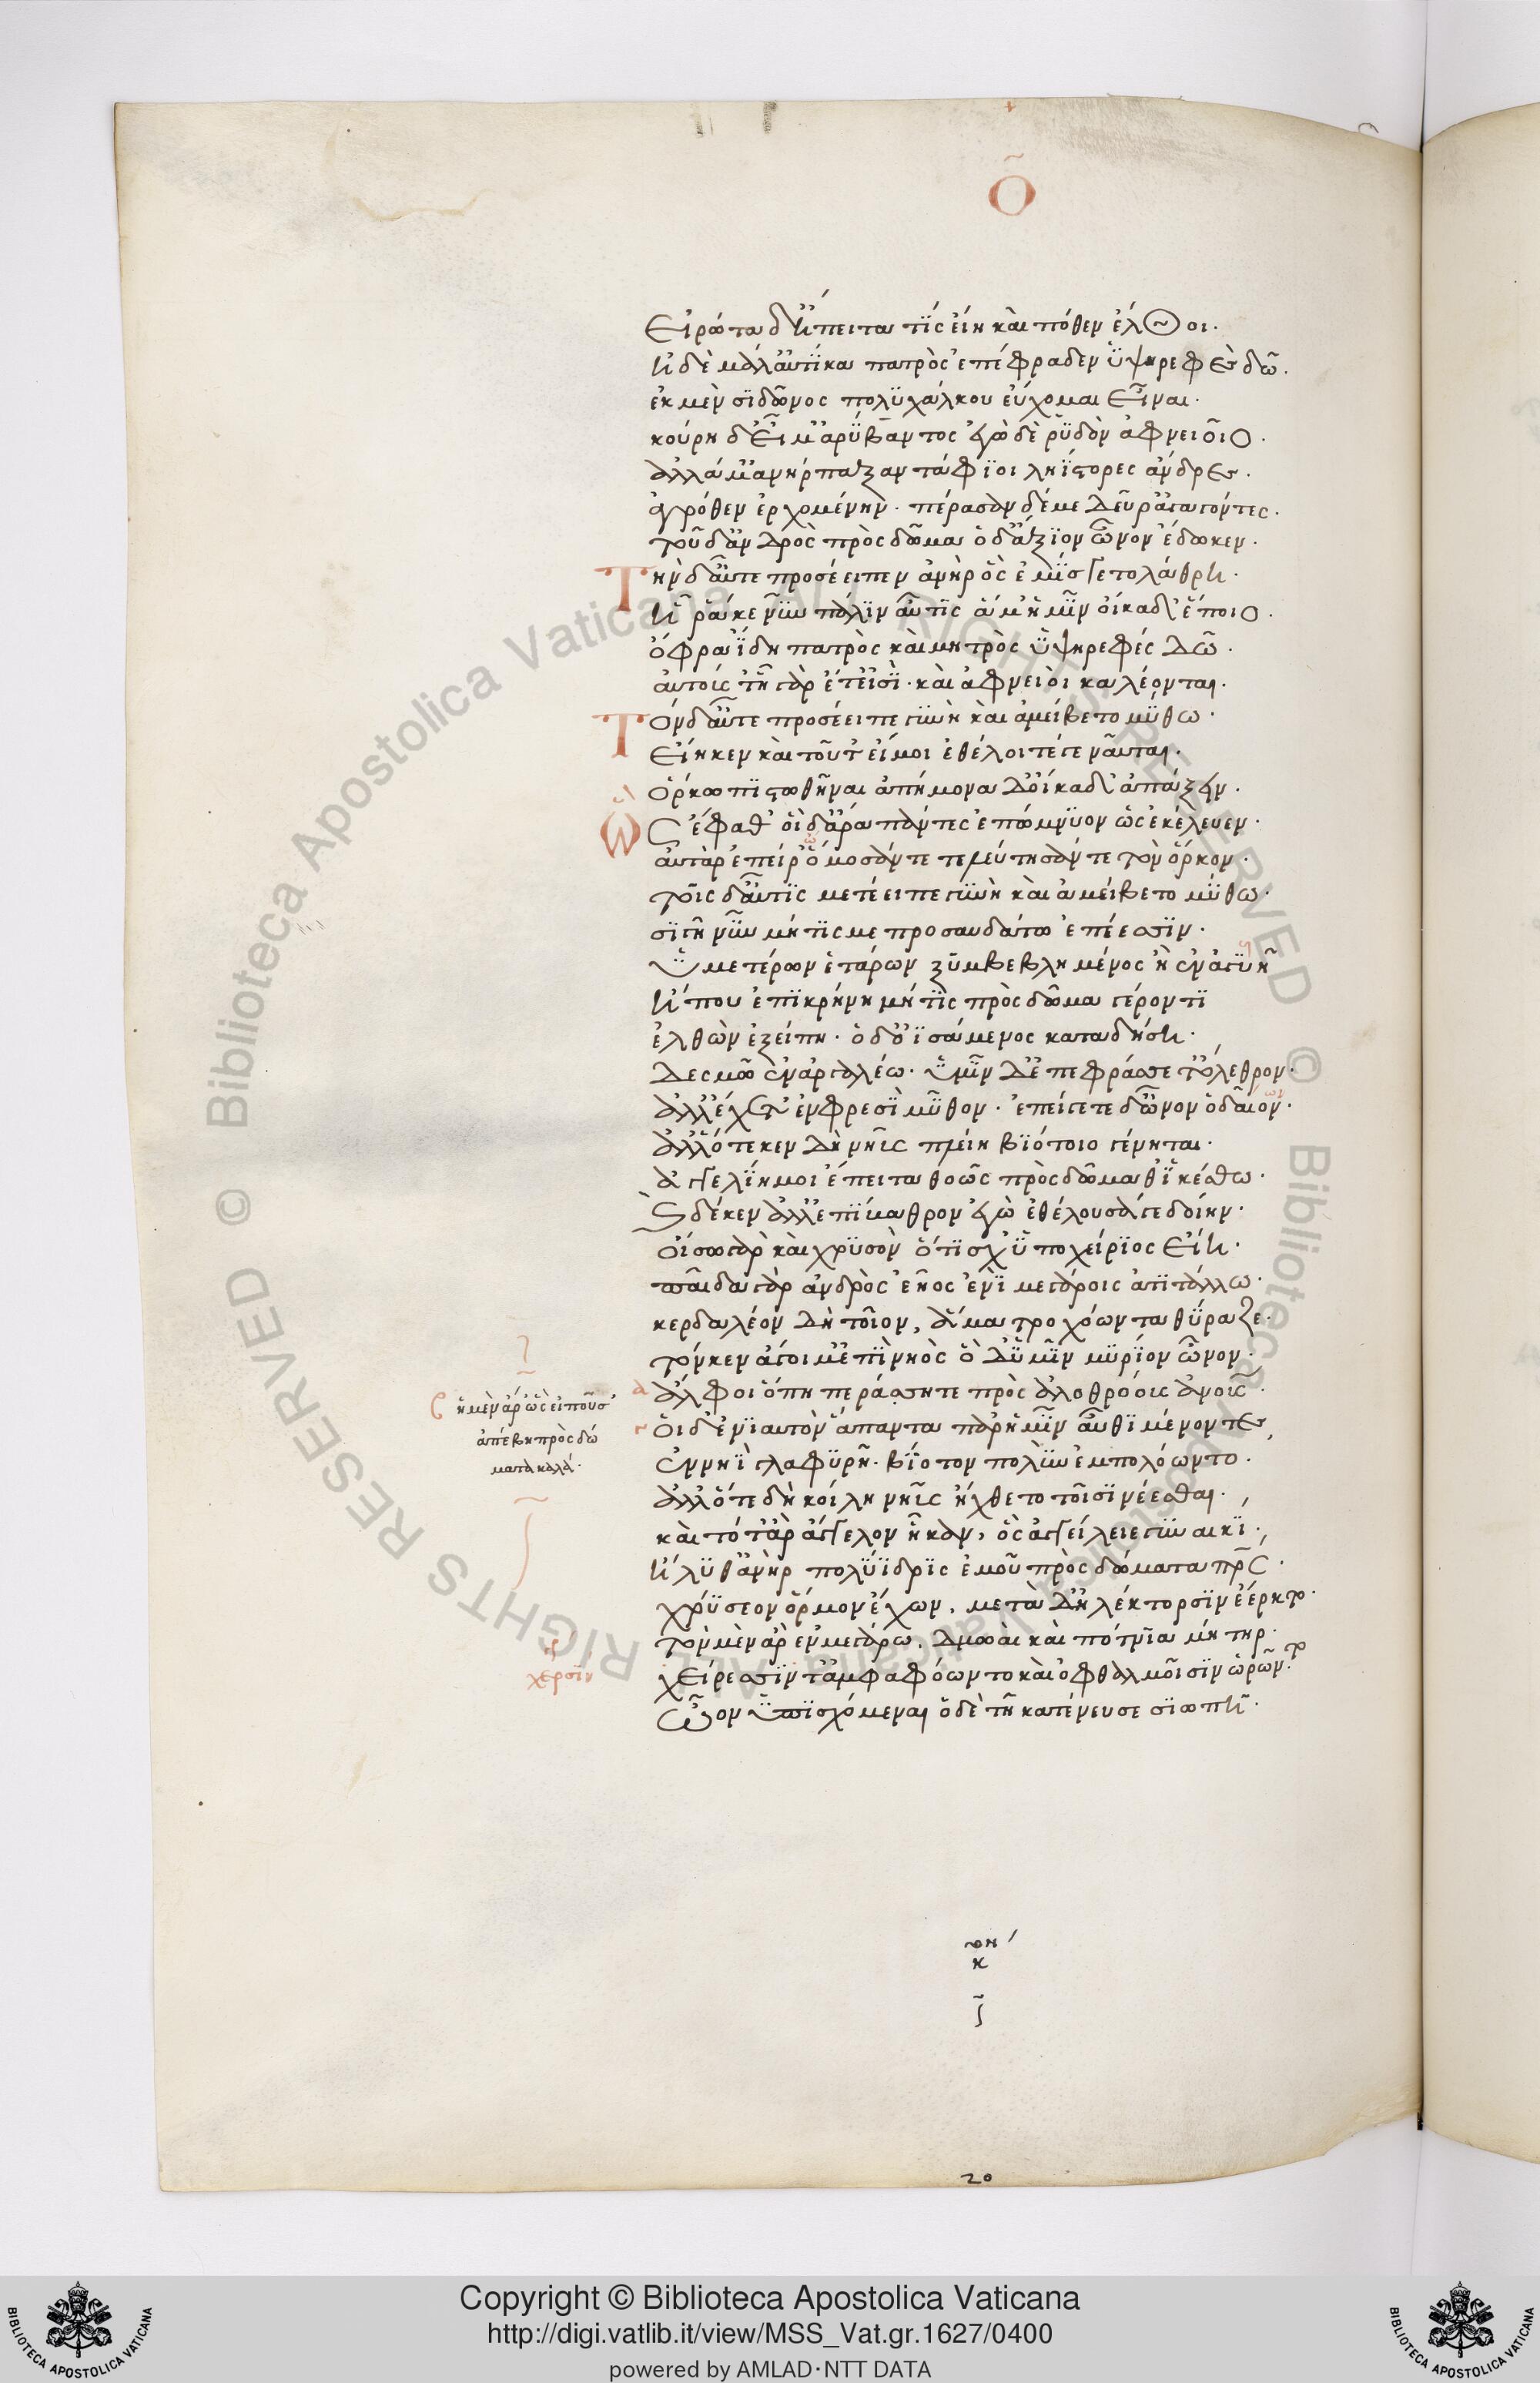 Ο
Εἰρώτα δἤπειτα τίς εἴη καὶ πόθεν ἔλθοι.
ἡ δὲ μάλ' αὐτίκα πατρὸς ἐπέφραδεν ὑψηρεφὲς δῶ.
ἐκ μὲν σιδῶνος πολυχάλκου εὔχομαι εἶναι.
κούρη δ' εἴμ' ἀρύβαντος ἐγὼ δὲ ῥυδὸν ἀφνειοῖο.
ἀλλά μ' ἀνήρπαξαν τάφιοι ληΐστορες ἄνδρες.
ἀγρόθεν ἐρχομένην. πέρασαν δέ με δεῦρ' ἀγαγόντες.
τοῦδ' ἀνδρὸς πρὸς δῶμα ὁ δ' ἄξιον ὦνον ἔδωκεν.
Τὴν δ' αὖτε προσέειπεν ἀνὴρ ὃς ἐμίσγετο λάθρῃ.
ἦ ῥά κε νῦν πάλιν αὖτις ἅμ' ἡμῖν οἴκαδ' ἕποιο.
ὄφρα ἴδῃ πατρὸς καὶ μητρὸς ὑψηρεφές δῶ.
αὐτούς τ' ἦ γὰρ ἔτ' εἰσὶ. καὶ ἀφνειοὶ καλέονται.
Τόν δ' αὖτε προσέειπε γυνὴ καὶ ἀμείβετο μύθω.
Εἴη κεν καὶ τοῦτ' εἴ μοι ἐθέλοιτέ γε ναῦται.
Ὅρκω πιστωθῆναι ἀπήμονα δ' οἴκαδ' ἀπάξειν.
Ὣς ἔφαθ' οἱ δ' ἄρα πάντες ἐπώμνυον ὡς ἐκέλευεν.
αὐτὰρ ἐπεί ῥ' ὄμοσάν τε τελεύτησάν τε τὸν ὅρκον.
τοῖς δ' αὖτις μετέειπε γυνὴ καὶ ἀμείβετο μύθω.
σιγῇ νῦν μή τίς με προσαυδάτω ἐπέεσσιν.
Ὑμετέρων ἑτάρων ξυμβεβλημένος ἢ ἐν ἀγυιῇ
ἤ που ἐπὶ κρήνῃ μή τις πρὸς δῶμα γέροντι
ἐλθὼν ἐξείπη. ὁ δ' ὀϊσάμενος καταδήσῃ.
Δεσμῶ ἐν ἀργαλέω. ὑμῖν δ' ἐπεφράσσετ' ὄλεθρον.
ἀλλ' ἔχετ' ἐν φρεσὶ μῦθον. ἐπείγετε δ' ὦνον ὁδαῖον.
ἀλλ' ὅτε κεν δὴ νηῦς πλείη βιότοιο γένηται.
ἀγγελίη μοι ἔπειτα θοῶς πρὸς δῶμαθ' ἱκέσθω.
καὶ δέ κεν ἄλλ' ἐπίβαθρον ἐγὼ ἐθέλουσά γε δοίην.
Οἴσω γὰρ καὶ χρυσὸν ὅτις χ' ὑποχείριος εἴη.
παῖδα γὰρ ἀνδρὸς ἑῆος ἐνὶ μεγάροις ἀτιτάλλω.
κερδαλέον δὴ τοῖον, ἅμα τροχόωντα θύραζε.
τόν κεν ἄγοιμ' ἐπὶ νηὸς ὁ δ' ὑμῖν μυρίον ὦνον.
ἄλφοι ὅπη περάσητε πρὸς ἀλοθρόους ἀνούς.
Οἱ δ' ἐνιαυτὸν ἅπαντα παρ' ἡμῖν αὖθι μένοντες,
ἐν νηῒ γλαφυρῇ. βίοτον πολὺν ἐμπολόωντο.
ἀλλ' ὅτε δὴ κοίλη νηῦς ἤχθετο τοῖσι νέεσθαι.
καὶ τότ' ἄρ' ἄγγελον ἧκαν, ὃς ἀγγείλειε γυναικί.
ἤλυθ' ἀνὴρ πολύϊδρις ἐμοῦ πρὸς δώματα πρς.
χρύσεον ὅρμον ἔχων, μετὰ δ' ἠλέκτορσιν ἔερκτο.
τὸν μὲν ἄρ' ἐν μεγάρω, δμωαὶ καὶ πότνια μήτηρ.
χείρεσσίν τ' ἀμφαφόωντο καὶ ὀφθαλμοῖσιν ὁρῶντο.
Ὦνον ὑπισχόμεναι ὁ δὲ τῇ κατένευσε σιωπῇ.
ἡ μὲν ἄρ' ὣς εἰποῦσ'
ἀπέβη πρὸς δώ
ματα καλά.
χερσίν
20
Copyright © Biblioteca Apostolica Vaticana
http://digi.vatlib.it/view/MSS_Vat.gr.1627/0400
powered by AMLAD·NTT DATA